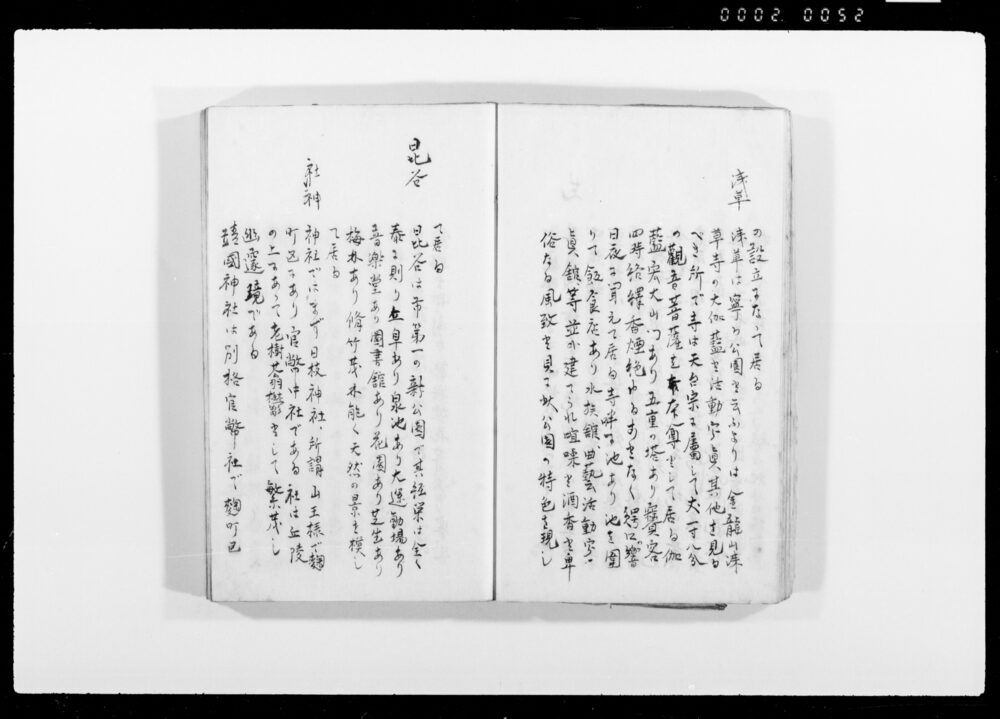 0002 0052
浅草
の設立になつて居る
浅草は寧ろ公園と云ふよりは金龍山浅
草寺の大伽藍と活動写真其他を見る
べき所で寺は天台宗に属して丈一寸八分
の観音菩薩を本尊として居る伽
藍宏大山門あり五重の塔あり賽客
四時絡繹香煙絶ゆるあとなく鰐口の響
日夜に聞えて居る寺畔に池あり池を囲
りて飲食店あり水族館曲藝活動写
真館等並び建てられ喧噪と酒香と卑
俗なる風致と具に此公園の特色を現し
て居る
日比谷
日比谷は市第一の新公園で其経営は全く
泰西に則り丘阜あり泉池あり大運動場あり
音楽堂あり図書館あり花園あり芝生あり
梅林あり脩竹茂木能く天然の景を模し
て居る
神社
神社ではまず日枝神社、所謂山王様で麹
町区にあり官幣中社である社は丘陵
の上にあつて老樹蓊欝として繁茂し
幽邃境である
靖國神社は別格官幣社で麹町区